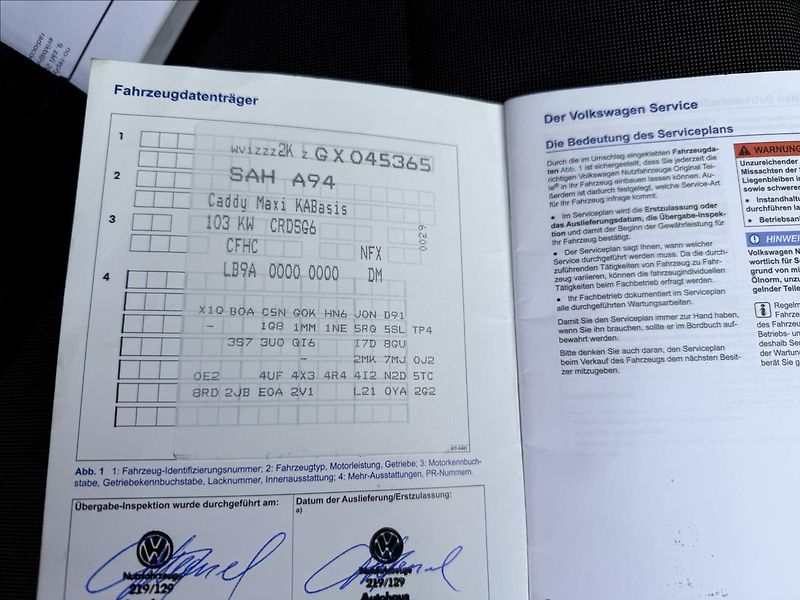 Fahrzeugdatenträger
1
WVIZZZ2K Z GX045365
2
SAH A94
Caddy Maxi KABasis
3
103 KW CRDSG6
0029
CFHC NFX
4
LB9A 0000 0000 DM
X10 B0A C5N G0K HN6 J0N D91
- 1G8 1MM 1NE 5RG 5SL TP4
3S7 3U0 QI6 I7D 8GU
- 2MK 7MJ 0J2
0E2 4UF 4X3 4R4 4I2 N2D 5TC
8RD 2JB E0A 2V1 L21 0YA 2G2
Abb. 1 1: Fahrzeug-Identifizierungsnummer; 2: Fahrzeugtyp, Motorleistung, Getriebe; 3: Motorkennbuch-
stabe, Getriebekennbuchstabe, Lacknummer, Innenausstattung; 4: Mehr-Ausstattungen, PR-Nummern.
Übergabe-Inspektion wurde durchgeführt am:
Datum der Auslieferung/Erstzulassung:
a)
Nutzfahrzeuge
219/129
Nutzfahrzeuge
219/129
Autohaus
Der Volkswagen Service
Die Bedeutung des Serviceplans
Durch die im Umschlag eingeklebten Fahrzeugda-
ten Abb. 1 ist sichergestellt, dass Sie jederzeit die
richtigen Volkswagen Nutzfahrzeuge Original Tei-
le® in Ihr Fahrzeug einbauen lassen können. Au-
ßerdem ist dadurch festgelegt, welche Service-Art
für Ihr Fahrzeug infrage kommt.
• Im Serviceplan wird die Erstzulassung oder
das Auslieferungsdatum, die Übergabe-Inspek-
tion und damit der Beginn der Gewährleistung für
Ihr Fahrzeug bestätigt.
• Der Serviceplan sagt Ihnen, wann welcher
Service durchgeführt werden muss. Da die durch-
zuführenden Tätigkeiten von Fahrzeug zu Fahr-
zeug variieren, können die fahrzeugindividuellen
Tätigkeiten beim Fachbetrieb erfragt werden.
• Ihr Fachbetrieb dokumentiert im Serviceplan
alle durchgeführten Wartungsarbeiten.
Damit Sie den Serviceplan immer zur Hand haben,
wenn Sie ihn brauchen, sollte er im Bordbuch auf-
bewahrt werden.
Bitte denken Sie auch daran, den Serviceplan
beim Verkauf des Fahrzeugs dem nächsten Besit-
zer mitzugeben.
WARNUNG
Unzureichender
Missachten der S
Liegenbleiben in
sowie schweren
• Instandhalt
durchführen la
• Betriebsan
HINWEI
Volkswagen N
wortlich für S
grund von mi
Ölnorm, unzu
gelnder Teile
Regelm
Fahrze
des Fahrzeug
Betriebs- un
deshalb Ser
der Wartun
berät Sie g